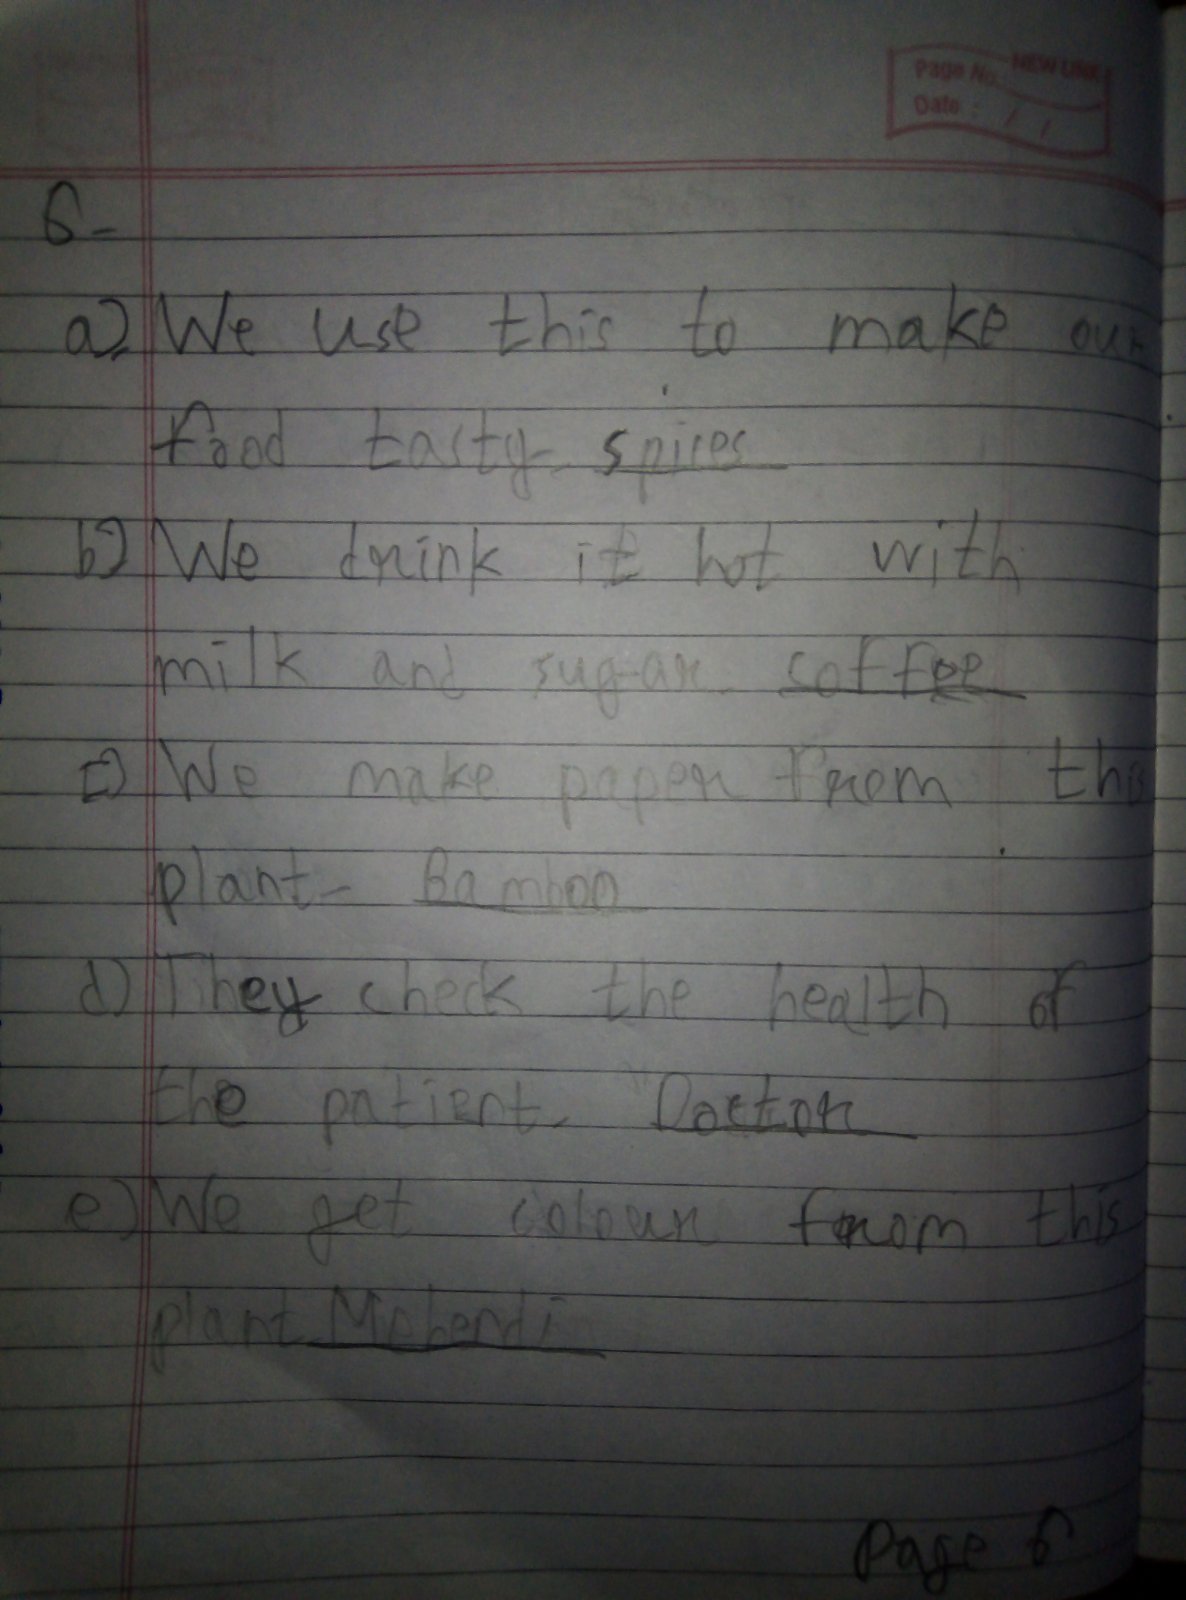 Page No. NEW LINK
Date : / /
6-
a) We use this to make our
food tasty- spices
b) We drink it hot with
milk and sugar- coffee
c) We make paper from this
plant- Bamboo
d) They check the health of
the patient- Doctor
e) We get colour from this
plant- Mehendi
Page 6